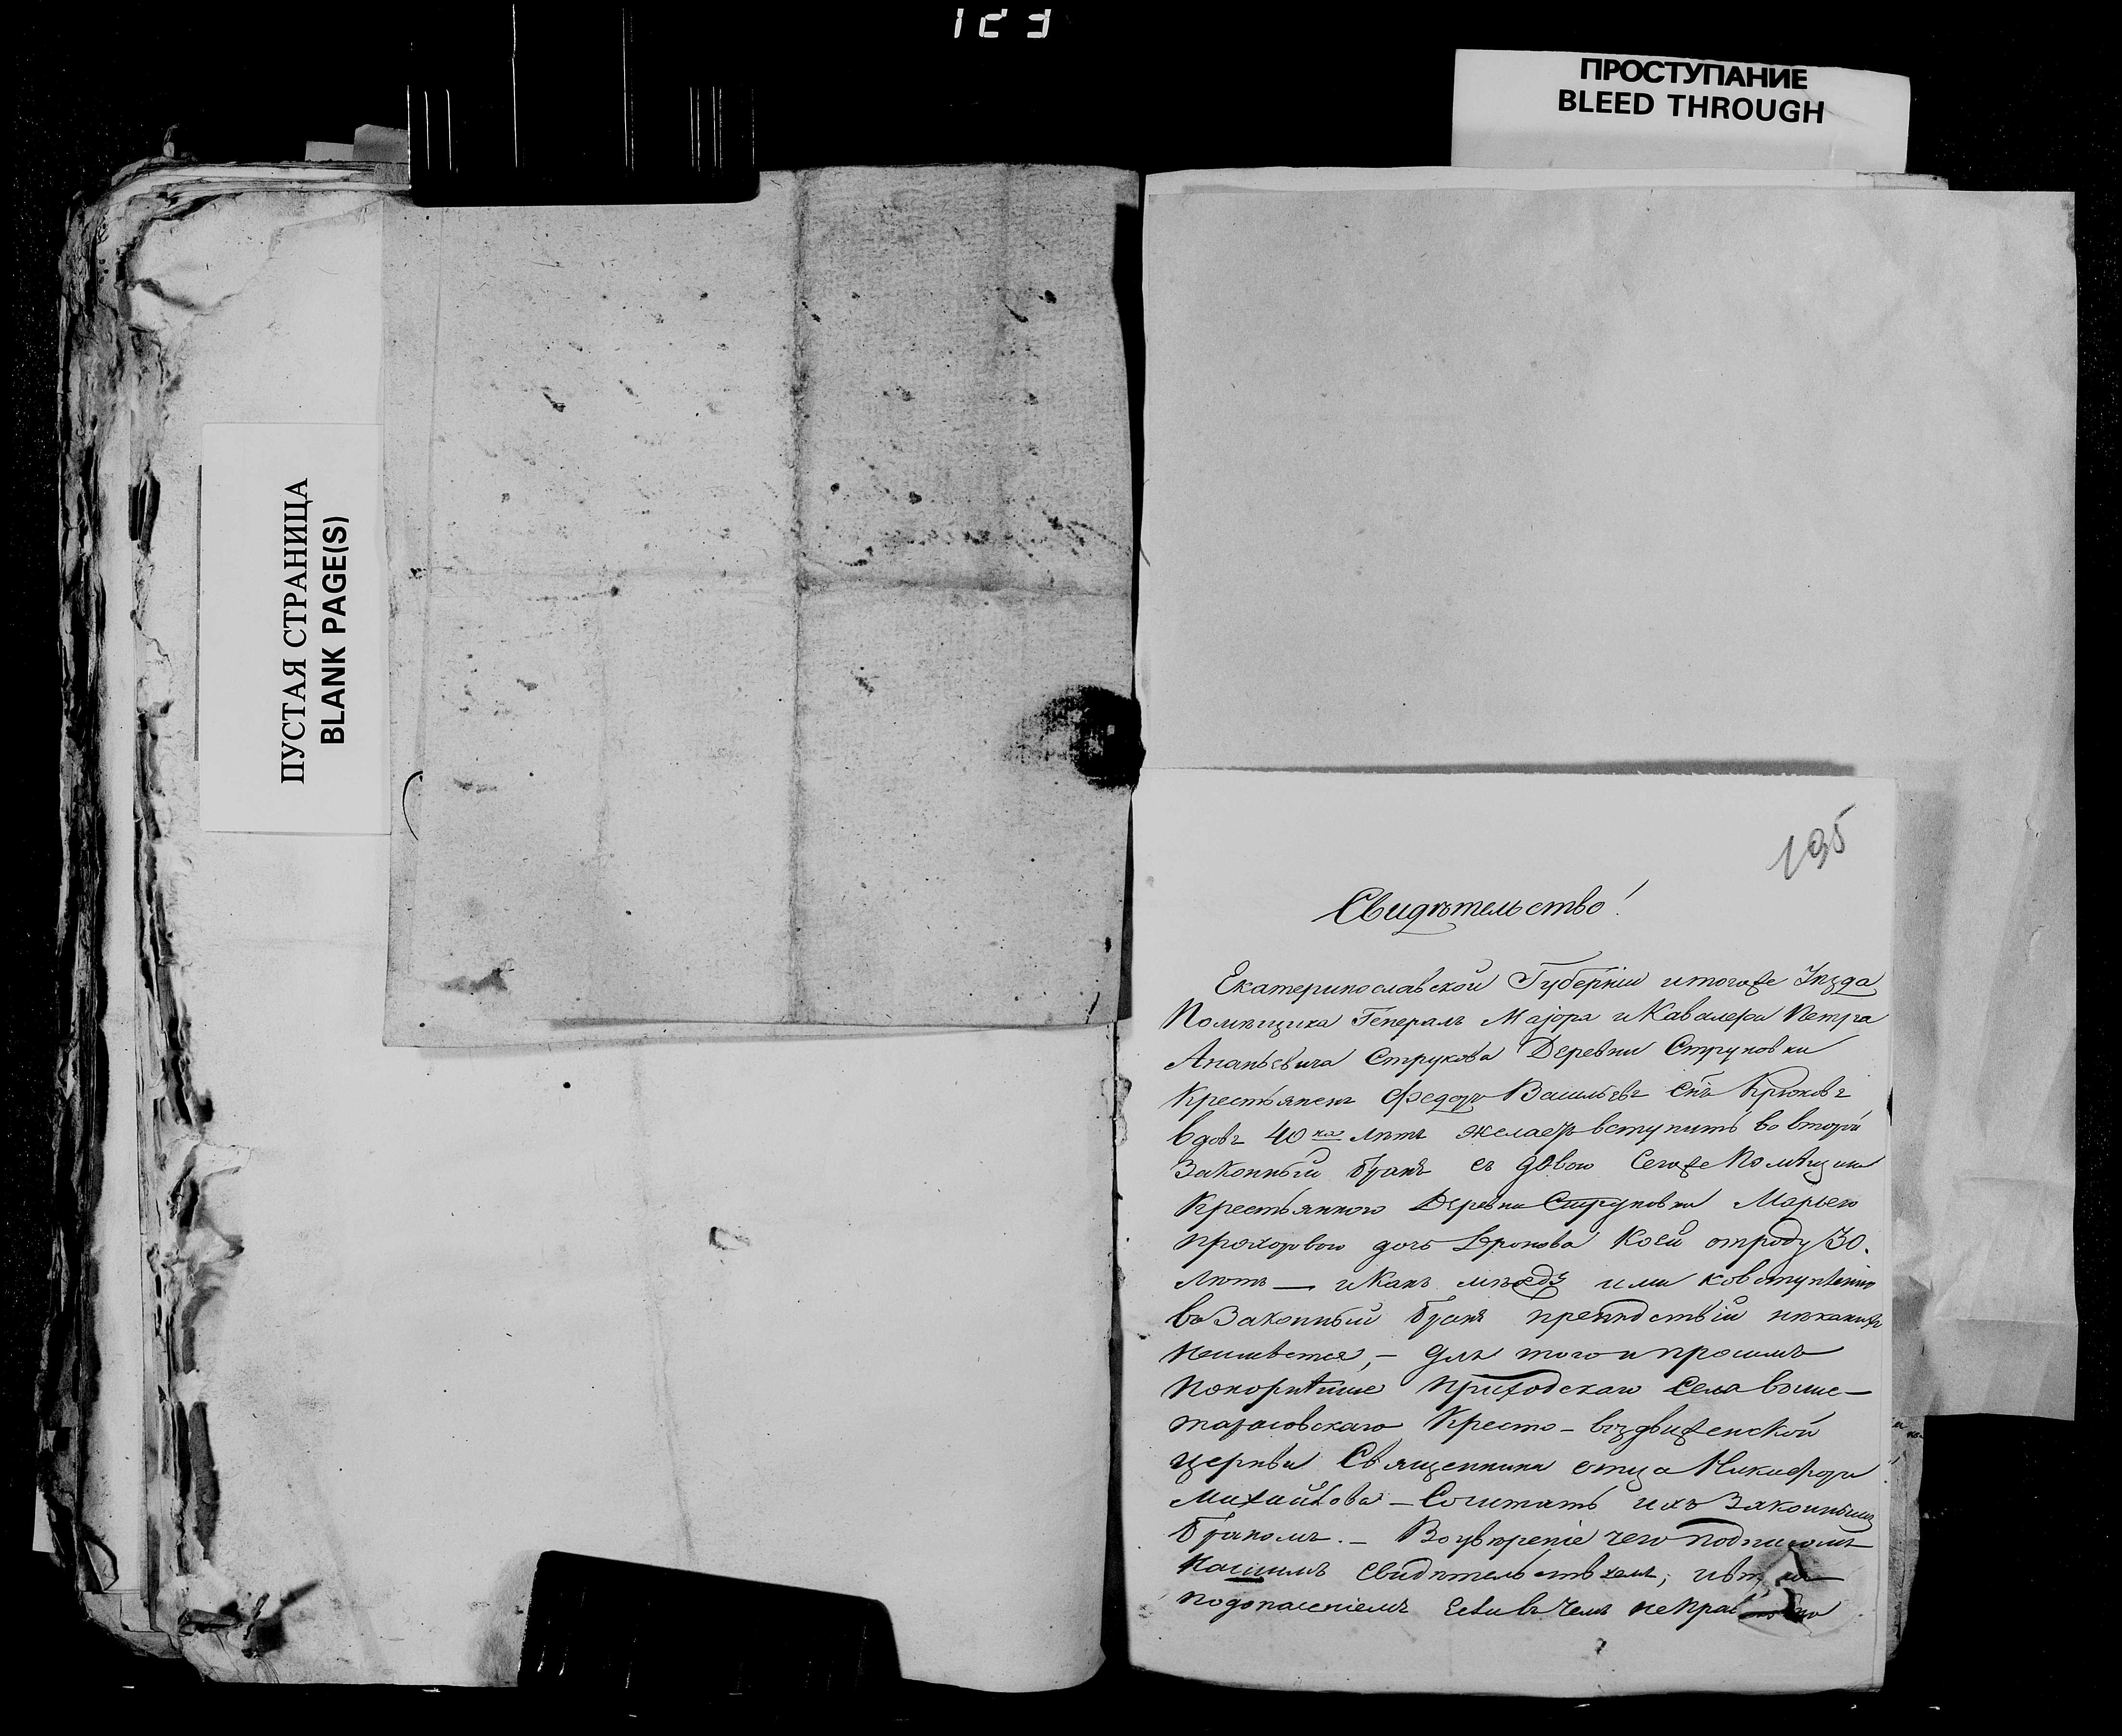 123
ПРОСТУПАНИЕ
BLEED THROUGH
ПУСТАЯ СТРАНИЦА
BLANK PAGE(S)
195
Свидѣтельство!
Екатеринославской Губерніи итогоже Уѣзда
Помѣщика Генералъ Маіора иКавалера Петра
Ананьевича Струкова Деревни Струковки
Крестьянинъ Федоръ Васильевъ Снъ Крюковъ
вдовъ 40ка лѣтъ желаетъ вступить во второй
Законный бракъ съ вдовою Сегоже Помѣщика
Крестьянкою Деревни Струковки Марьею
Прохоровою дочь Дронова Коей отроду 30.
Лѣтъ — иКакъ мѣжду ими ковступленію
воЗаконный бракъ препядствій никакихъ
Неимѣется, — Для того и просимъ
Покорнѣйше Приходскаго Села выше-
тарасовскаго Кресто-воздвиженской
церкви Священника отца Никифора
Михайлова — Сочитать ихъ Законнымъ
бракомъ. — Воувѣреніе чего подписомъ
Нашимъ свидѣтельствуемъ;
подопасеніемъ Если въ Чемъ